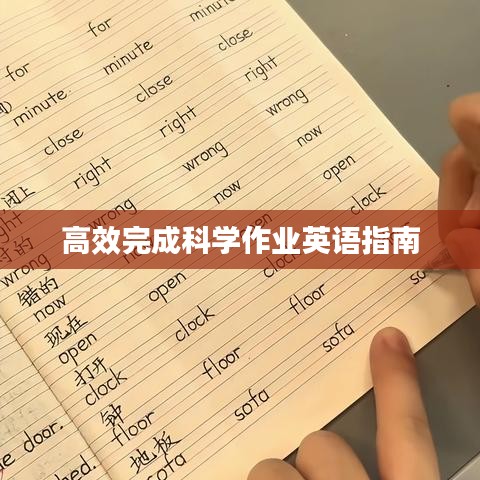 for for
minute minute minute
close close close
闭上 right right right
ght wrong wrong wrong
的 now now
wrong open open
错的 clock clock
now floor floor
现在 sofa sofa so
open
打开
clock
钟
floor
地板
sofa
door.
高效完成科学作业英语指南